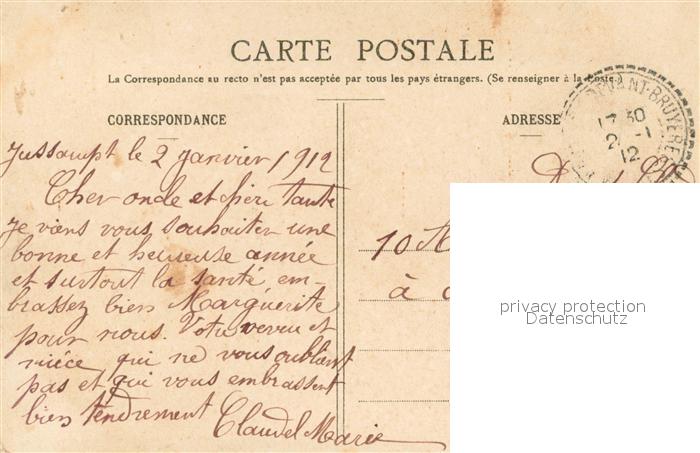 CARTE POSTALE
La Correspondance au recto n'est pas acceptée par tous les pays étrangers. (Se renseigner à la Poste.)
CORRESPONDANCE
Jussarupt le 2 janvier 1912
Cher oncle et chère tante
je viens vous souhaiter une
bonne et heureuse année
et surtout la santé, em-
brassez bien Marguerite
pour nous. Votre neveu et
nièce, qui ne vous oublient
pas et qui vous embrassent
bien tendrement Claudel Marie
ADRESSE
BRUYERE
17 30
2 -1
12
10
à
privacy protection
Datenschutz